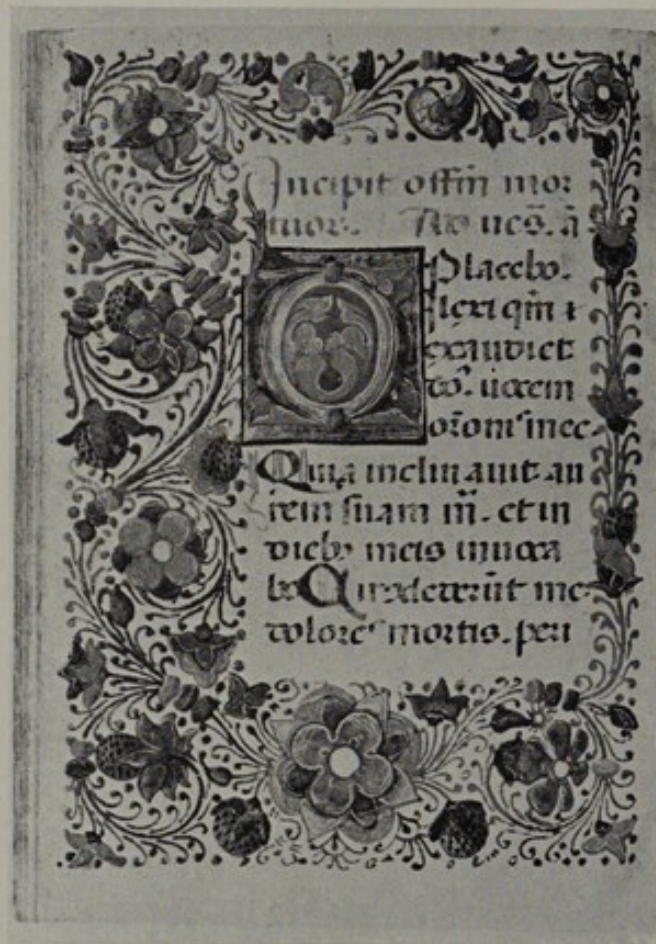 Incipit offm̄ mor
tuor. Ad ues̄. ā
Placebo.
ilexi qm̄ i
exaudiet
do. uocem
or̄onis mee.
Quia inclinauit au
rem suam m̄. et in
dieb; meis inuoca
bo Circumdederūt me
dolores mortis. peri